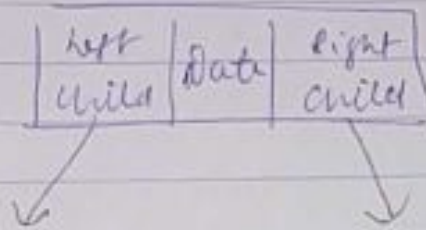 Left Child
Data
Right Child